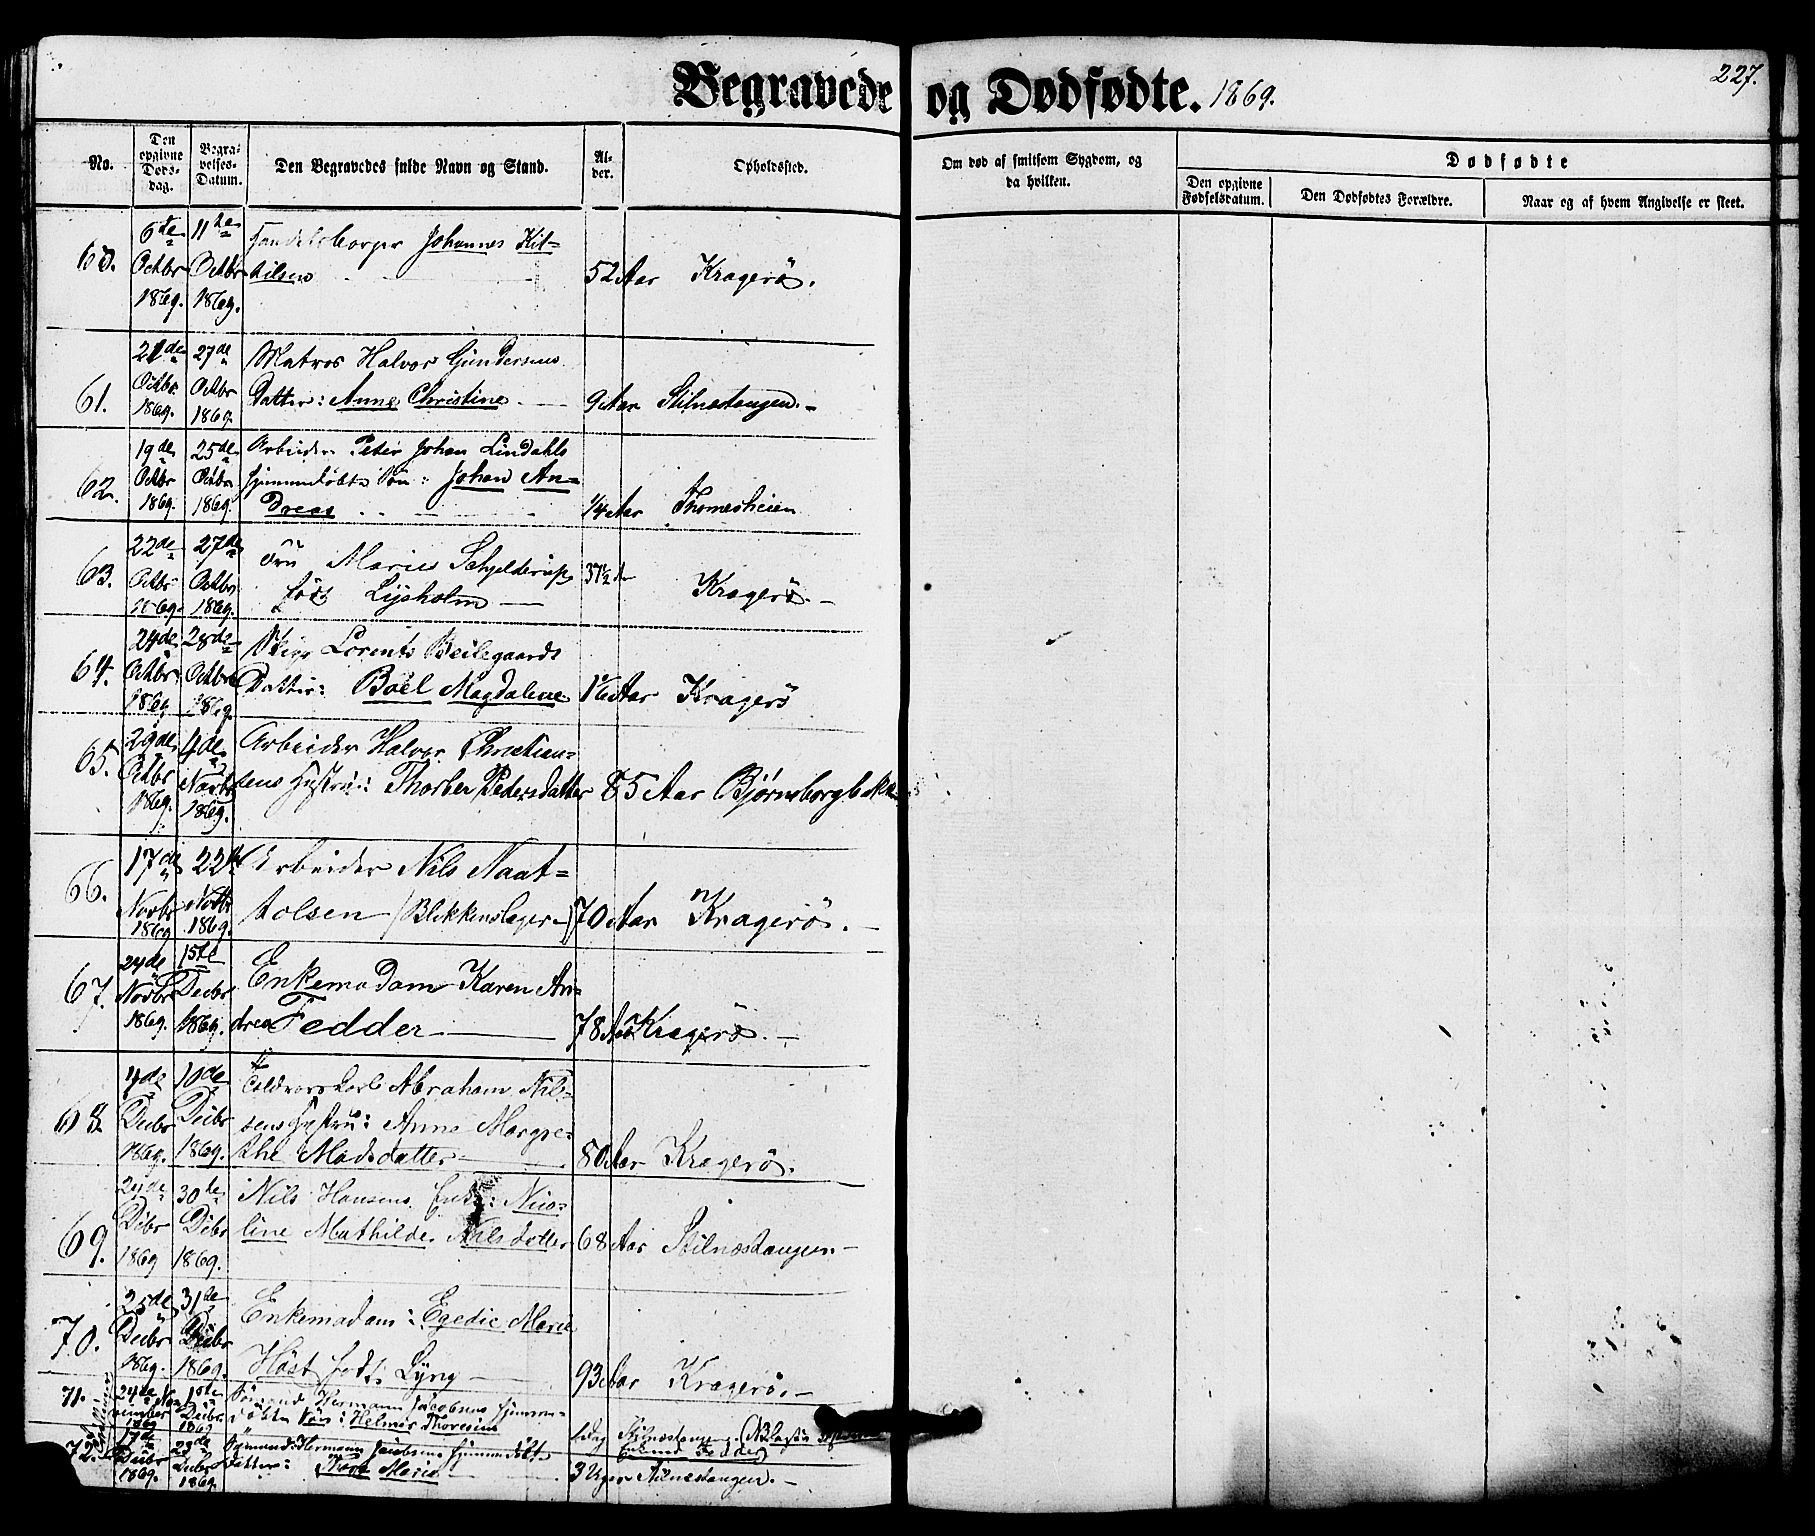 Begravede og Dødfødte. 1869.
227.
No.
Den opgivne Døds-dag.
Begra-velses-Datum.
Den Begravedes fulde Navn og Stand.
Al-der.
Opholdssted.
Om død af smitsom Sygdom, og da hvilken.
Dødfødte
Den opgivne Fødselsdatum.
Den Dødfødtes Forældre.
Naar og af hvem Angivelse er skeet.
6te Octbr 1869. 11te Octbr 1869. Handelsborger Johannes Kit=
tilsen 52 Aar Kragerö.
61. 21de Octbr 1869. 27de Octbr 1869. Matros Halvor Gundersens
Datter: Anne Christine 9 Aar Stilnestangen.
62. 19de Octbr 1869. 25de Octbr 1869. Arbeider Peter Johan Lindahls
hjemmedöbte Sön: Johan An=
dreas 1/4 Aar Thomesheien
63. 22de Octbr 1869. 27de Octbr 1869. Fru Marie Schjelderup
född Lysholm 37 1/2 Kragerö.
64. 24de Octbr 1869. 28de Octbr 1869. Lorents Beilegaards
Datter: Boel Magdalene Aar Kragerö
65. 29de Octbr 1869. 4de Novbr 1869. Arbeider Halvor Christian=
sens Hustru: Thorber Pedersdatter 85 Aar Björnsborgbakk
66. 17de Novbr 1869 22de Novbr 1869. Arbeider Nils Naat=
tolsen (Blikkenslager) 70 Aar Kragerö.
67. 24de Novbr 1869. 1ste Decbr 1869. Enkemadam Karen An=
drea Fedder 78 Aar Kragerö.
68. 4de Decbr 1869. 10de Decbr 1869. Abraham Nil=
sens Hustru: Anne Margre=
the Madsdatter 80 Aar Kragerö.
69. Decbr 1869 30te Decbr 1869. Nils Hansens Enke: Nico=
line Mathilde Nilsdatter 68 Aar Stilnestangen
70. 25de Decbr 1869. 31de Decbr 1869. Enkemadam: Egedie Marie
Höst född Lyng 93 Aar Kragerö.
71. 24de November 1869 1ste Decbr 1869 Hermann Jacobsens hjemme=
döbte Sön: Helmer Thoresius 1 Dag Stilnestangen
72. 17de Decbr 1869. 23de Decbr 1869. Hermann Jacobsens hjemmedöbte
Datter: Thora Marie 3 Uger Stilnestangen.